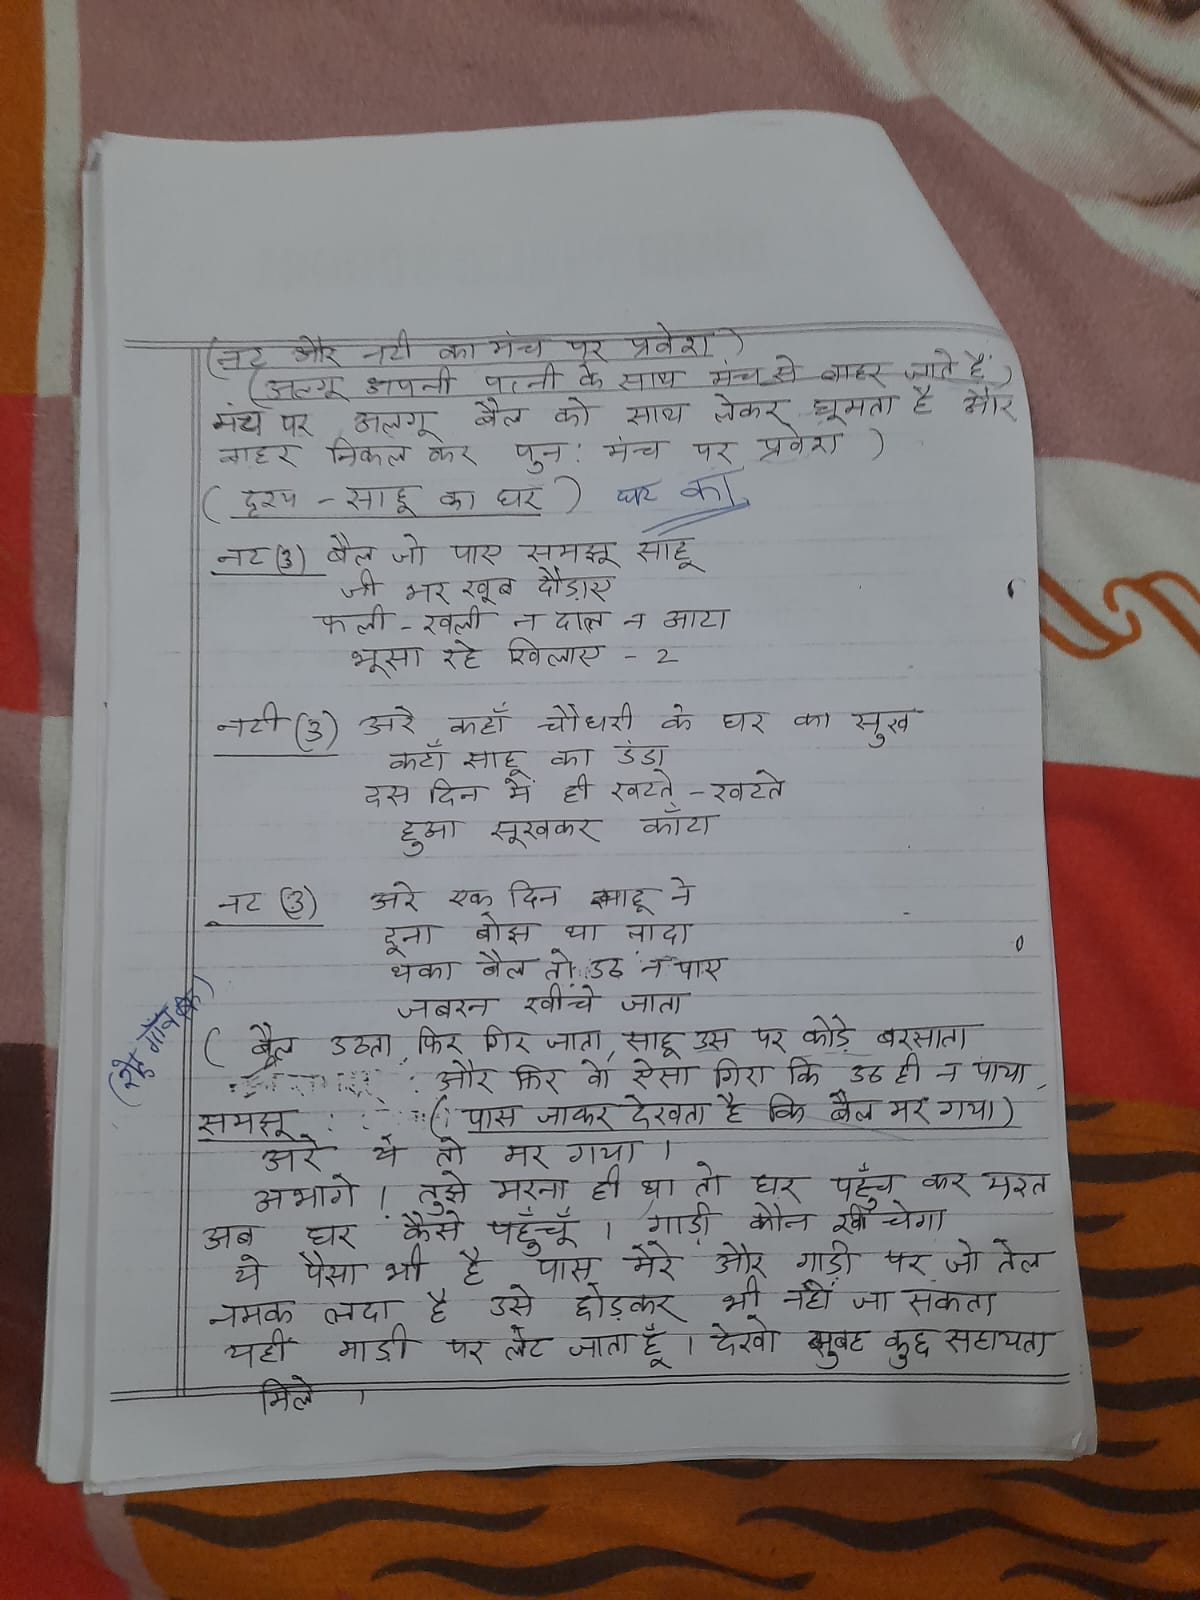 (नट और नटी का मंच पर प्रवेश)
(अलगू अपनी पत्नी के साथ मंच से बाहर जाते हैं)
मंच पर अलगू बैल को साथ लेकर घूमता है और
बाहर निकल कर पुन: मंच पर प्रवेश)
(दृश्य - साहू का घर) घर का
नट (3) बैल जो पाए समझू साहू
जी भर खूब दौड़ाए
फली - खली न दाल न आटा
भूसा रहे खिलाए - 2
नटी (3) अरे कहाँ चौधरी के घर का सुख
कहाँ साहू का डंडा
दस दिन में ही खटते - खटते
हुआ सूखकर काँटा
नट (3) अरे एक दिन साहू ने
दूना बोझ था लादा
थका बैल तो उठ न पाए
जबरन खींचे जाता
(बैल उठता, फिर गिर जाता, साहू उस पर कोड़े बरसाता
और फिर वो ऐसा गिरा कि उठ ही न पाया,
समझू : (पास जाकर देखता है कि बैल मर गया)
अरे ये तो मर गया।
अभागे। तुझे मरना ही था तो घर पहुँच कर मरता
अब घर कैसे पहुँचूँ। गाड़ी कौन खींचेगा
ये पैसा भी है पास मेरे और गाड़ी पर जो तेल
नमक लदा है उसे छोड़कर भी नहीं जा सकता
यहीं गाड़ी पर लेट जाता हूँ। देखो सुबह कुछ सहायता
मिले।